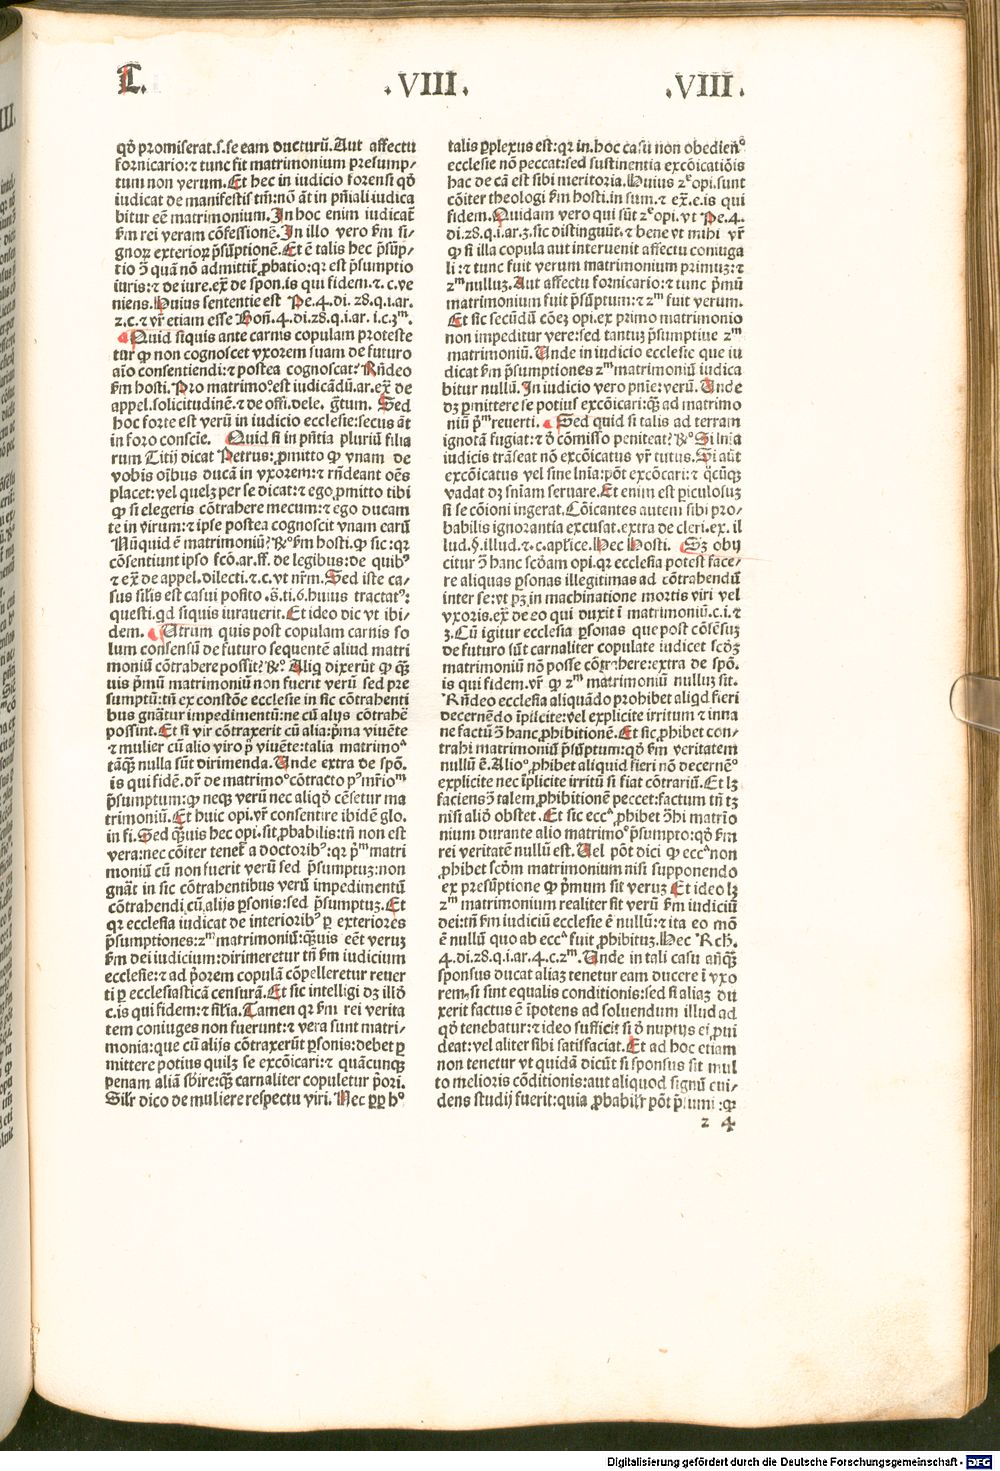 T. .VIII. .VIII.
qd̄ promiserat.s.se eam ducturū.Aut affectu
fornicario:⁊ tunc fit matrimonium presump-
tum non verum.Et hec in iudicio forensi qd̄
iudicat de manifestis tm̄:nō āt in pn̄iali iudica
bitur eē matrimonium.In hoc enim iudicat̄
ẜm rei veram cōfessionē.In illo vero ẜm si-
gnorꝝ exteriorꝝ p̄sūptionē.Et ē talis hec p̄sūp-
tio ↄ̄ quā nō admittit̄ ꝓbatio:qꝛ est p̄sumptio
iuris:⁊ de iure.ex̄ de spon.is qui fidem.⁊.c.ve
niens.Huius sententie est Pe.4.di.28.q.i.ar.
2.c.⁊ vr̄ etiam esse Bon̄.4.di.28.q.i.ar.i.c.3ᵐ.
Quid siquis ante carnis copulam proteste
tur ꝙ non cognoscet vxorem suam de futuro
aīo consentiendi:⁊ postea cognoscat? Rn̄deo
ẜm hosti.Pro matrimoᵒ.est iudicādū.ar.ex̄ de
appel.solicitudinē.⁊ de offi.dele. gr̄tum. Sed
hoc forte est verū in iudicio ecclesie:secus āt
in foro conscīe. Quid si in pn̄tia pluriū filia
rum Titij dicat Petrus:ꝓmitto ꝙ vnam de
vobis oībus ducā in vxorem:⁊ rn̄deant oēs
placet:vel quelꝫ per se dicat:⁊ ego ꝓmitto tibi
ꝙ si elegeris cōtrahere mecum:⁊ ego ducam
te in virum:⁊ ipse postea cognoscit vnam earū
Nūquid ē matrimoniū?℞ᵒ ẜm hosti.ꝙ sic:qꝛ
cōsentiunt ipso fcō.ar.ff. de legibus:de quibꝰ
⁊ ex̄ de appel.dilecti.⁊.c.vt nr̄m.Sed iste ca-
sus silis est casui posito .s̄.ti.6.huius tractatꝰ:
questi.qd siquis iurauerit.Et ideo dic vt ibi-
dem. Utrum quis post copulam carnis so
lum consensū de futuro sequentē aliud matri
moniū cōtrahere possit?℞ᵒ. Aliq dixerūt ꝙ qꝫ̄
uis p̄mū matrimoniū non fuerit verū sed pre
sumptū:tn̄ ex constōe ecclesie in sic cōtrahenti
bus gnātur impedimentū:ne cū alijs cōtrahē
possint.Et si vir cōtraxerit cū alia:p̄ma viuēte
⁊ mulier cū alio viro p̄ viuēte:talia matrimoᵃ
tāꝗ̄ nulla sūt dirimenda.Unde extra de spō.
is qui fidē.dr̄ de matrimoᵒ cōtracto pꝰ mr̄ioᵐ
p̄sumptum:ꝙ neqꝫ verū nec aliqd̄ cēsetur ma
trimoniū.Et huic opi.vr̄ consentire ibidē glo.
in fi.Sed qꝫ̄uis hec opi.sit ꝓbabilis:tn̄ non est
vera:nec cōiter tenet̄ a doctoribꝰ:qꝛ p̄ᵐ matri
moniū cū non fuerit verū sed p̄sumptuꝫ:non
gnāt in sic cōtrahentibus verū impedimentū
cōtrahendi cū alijs ꝑsonis:sed p̄sumptuꝫ.Et
qꝛ ecclesia iudicat de interioribꝰ ꝑ exteriores
p̄sumptiones:2ᵐ matrimoniū:qꝫ̄uis eēt veruꝫ
ẜm dei iudicium:dirimeretur tn̄ ẜm iudicium
ecclesie:⁊ ad p̄orem copulā cōpelleretur reuer
ti ꝑ ecclesiasticā censurā.Et sic intelligi dꝫ illd̄
c.is qui fidem:⁊ silia.Tamen qꝛ ẜm rei verita
tem coniuges non fuerunt:⁊ vera sunt matri-
monia:que cū alijs cōtraxerūt ꝑsonis:debet ꝑ
mittere potius quilꝫ se excōicari:⁊ quācunqꝫ
penam aliā sbire:qꝫ̄ carnaliter copuletur p̄ori.
Silr̄ dico de muliere respectu viri. Nec ꝑꝑ hᵒ
talis ꝑplexus est:qꝛ in hoc casu non obedienᵒ
ecclesie nō peccat:sed sustinentia excōicatiōis
hac de cā est sibi meritoria.Huius 2ᵉ opi.sunt
cōiter theologi ẜm hosti.in sum.⁊ ex̄.e.is qui
fidem.Quidam vero qui sūt 2ᵉ opi.vt Pe.4.
di.28.q.i.ar.3.sic distinguūt.⁊ bene vt mihi vr̄
ꝙ si illa copula aut interuenit affectu coniuga
li:⁊ tunc fuit verum matrimonium primuꝫ:⁊
2ᵐ nulluꝫ.Aut affectu fornicario:⁊ tunc p̄mū
matrimonium fuit p̄sūptum:⁊ 2ᵐ fuit verum.
Et sic secūdū cōeꝫ opi.ex primo matrimonio
non impeditur vere:sed tantuꝫ p̄sumptiue 2ᵐ
matrimoniū.Unde in iudicio ecclesie que iu
dicat ẜm p̄sumptiones 2ᵐ matrimoniū iudica
bitur nullū.In iudicio vero pn̄ie:verū.Unde
dꝫ ꝑmittere se potius excōicari:qꝫ̄ ad matrimo
niū p̄ᵐ reuerti. Sed quid si talis ad terram
ignotā fugiat:⁊ d̄ cōmisso peniteat?℞ᵒ Si lnīa
iudicis trāseat nō excōicatus vr̄ tutus.Si aūt
excōicatus vel sine lnīa:pōt excōcari:⁊ qcūqꝫ
vadat dꝫ sn̄iam seruare.Et enim est ꝑiculosuꝫ
si se cōioni ingerat.Cōicantes autem sibi pro-
babilis ignorantia excusat.extra de cleri.ex.il
lud.⁊.c.aplice.Hec Hosti. Sꝫ obij
citur ↄ̄ hanc scōam opi.qꝛ ecclesia potest face-
re aliquas ꝑsonas illegitimas ad cōtrahendū
inter se:vt pꝫ in machinatione mortis viri vel
vxoris.ex̄ de eo qui duxit ī matrimoniū.c.i.⁊
3.Cū igitur ecclesia ꝑsonas que post cōsēsuꝫ
de futuro sūt carnaliter copulate iudicet scōꝫ
matrimoniū nō posse cōtrahere:extra de spō.
is qui fidem.vr̄ ꝙ 2ᵐ matrimoniū nulluꝫ sit.
Rn̄deo ecclesia aliquādo prohibet aliqd fieri
decernēdo īplicite:vel explicite irritum ⁊ inna
ne factū ↄ̄ hanc ꝓhibitionē.Et sic ꝓhibet con-
trahi matrimoniū p̄sūptum:qd̄ ẜm veritatem
nullū ē.Alioᵒ ꝓhibet aliquid fieri nō decernēᵒ
explicite nec īplicite irritū si fiat cōtrariū.Et lꝫ
faciens ↄ̄ talem ꝓhibitionē peccet:factum tn̄ tꝫ
nisi alid̄ obstet.Et sic eccᵃ ꝓhibet ↄ̄hi matrio
nium durante alio matrimoᵒ p̄sumpto:qd̄ ẜm
rei veritatē nullū est.Uel pōt dici ꝙ eccᵃ non
ꝓhibet scōm matrimonium nisi supponendo
ex presūptione ꝙ p̄mum sit veruꝫ Et ideo lꝫ
2ᵐ matrimonium realiter sit verū ẜm iudiciū
dei:tn̄ ẜm iudiciū ecclesie ē nullū:⁊ ita eo mō
ē nullū quo ab eccᵃ fuit ꝓhibituꝫ.Hec Rch.
4.di.28.q.i.ar.4.c.2ᵐ.Unde in tali casu anꝗ̄ꝫ
sponsus ducat aliaꝫ tenetur eam ducere ī vxo
rem,si sint equalis conditionis:sed si aliaꝫ du
xerit factus ē īpotens ad soluendum illud ad
qd̄ tenebatur:⁊ ideo sufficit si d̄ nuptijs ei ꝓui
deat:vel aliter sibi satisfaciat.Et ad hoc etiam
non tenetur vt quidā dicūt si sponsus sit mul
to melioris cōditionis:aut aliquod signū eui-
dens studij fuerit:quia ꝓbabilr̄ pōt p̄sumi:ꝙ
2 4
Digitalisierung gefördert durch die Deutsche Forschungsgemeinschaft - DFG